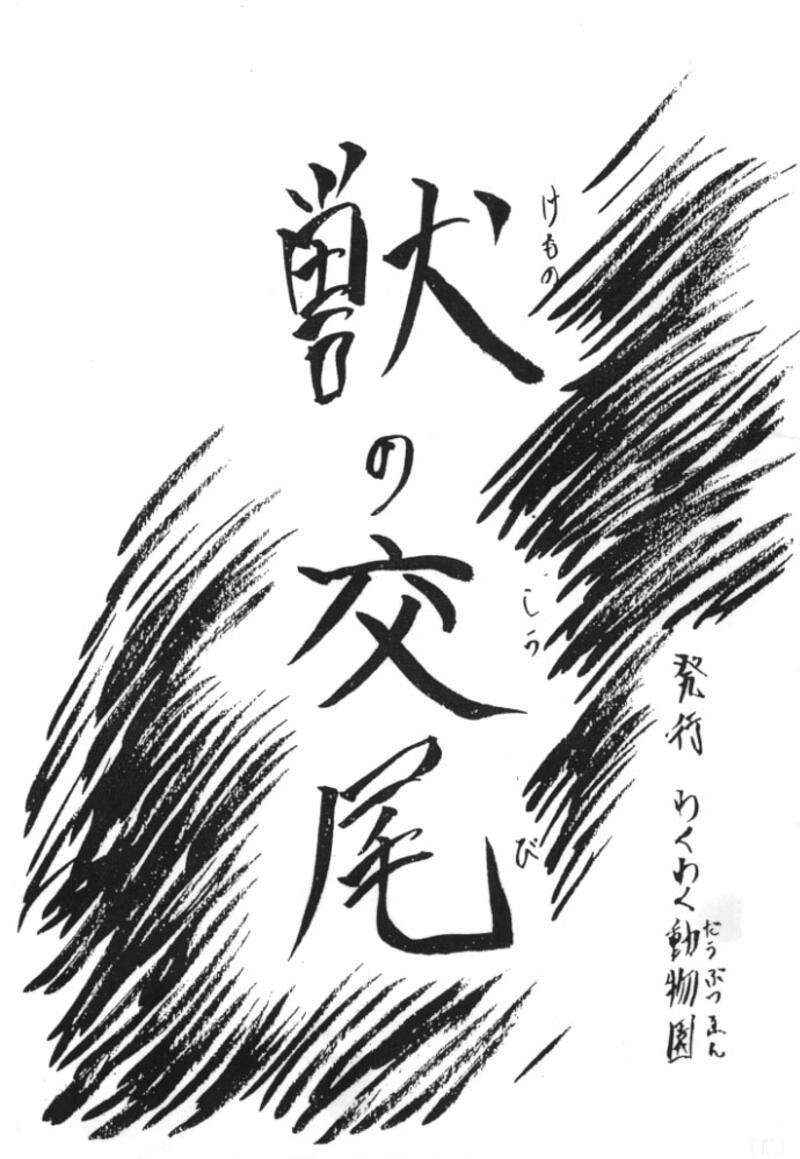 獣の交尾
けもの
こうび
発行 わくわく動物園
だうぶつゑん